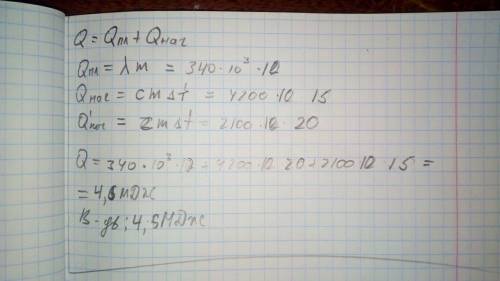 Q = Qпл + Qнаг
Qпл = λm = 340·10³·12
Qнаг = cmΔt = 4200·12 15
Q'наг = cmΔt = 2100·12·20
Q = 340·10³·12 + 4200·12 20 + 2100 12 · 15 =
= 4,5 МДж
В-дь; 4,5 МДж